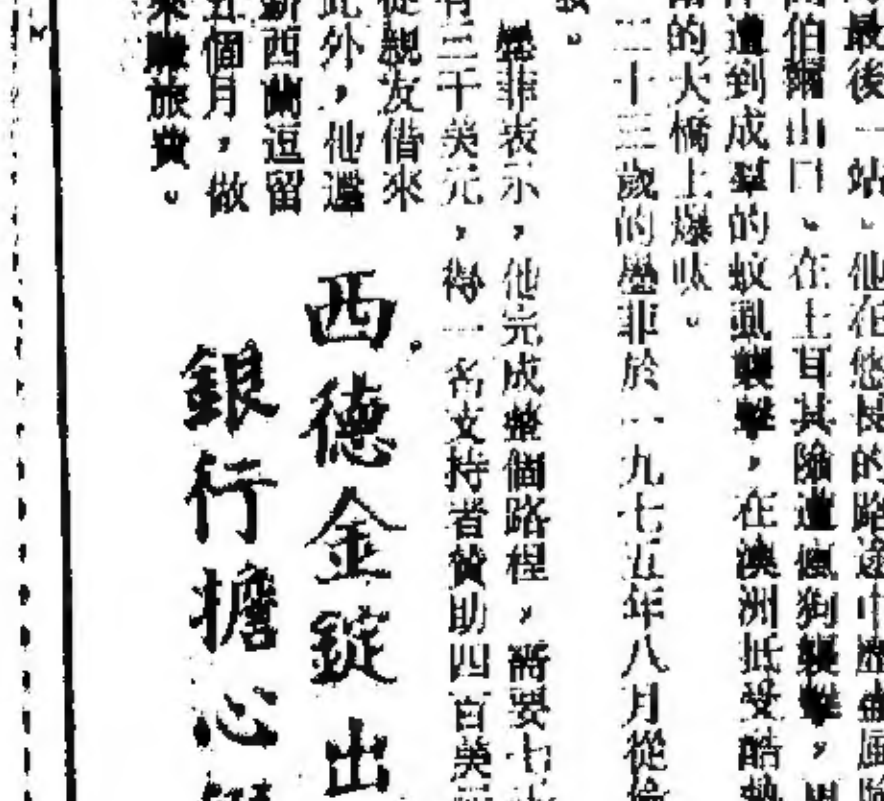 最後一站。他在悠長的路途中歷盡風險
伯爾山口、在土耳其險遭瘋狗襲擊，
遭到成羣的蚊虱襲擊，在澳洲抵受酷熱
的大橋上爆呔。
二十三歲的歷菲於一九七五年八月從倫
歷菲表示，他完成整個路程，需要七
有三千美元，得一名支持者贊助四百美元
從親友借來
此外，他還
新西蘭逗留
五個月，做
來賺旅費。
西德金錠出
銀行擔心